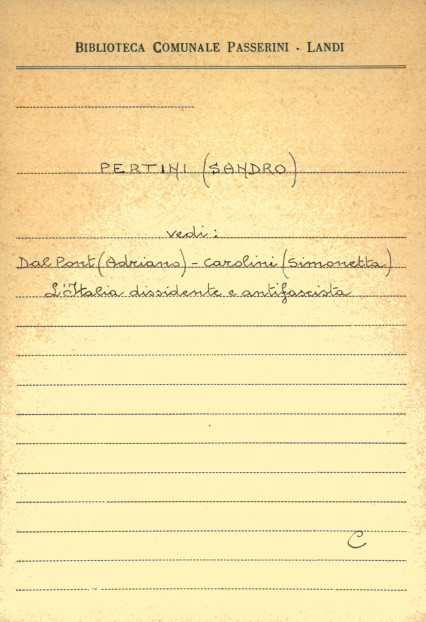 BIBLIOTECA COMUNALE PASSERINI - LANDI
PERTINI (SANDRO)
vedi:
Dal Pont (Adriano) - Carolini (Simonetta)
L'Italia dissidente e antifascista
C